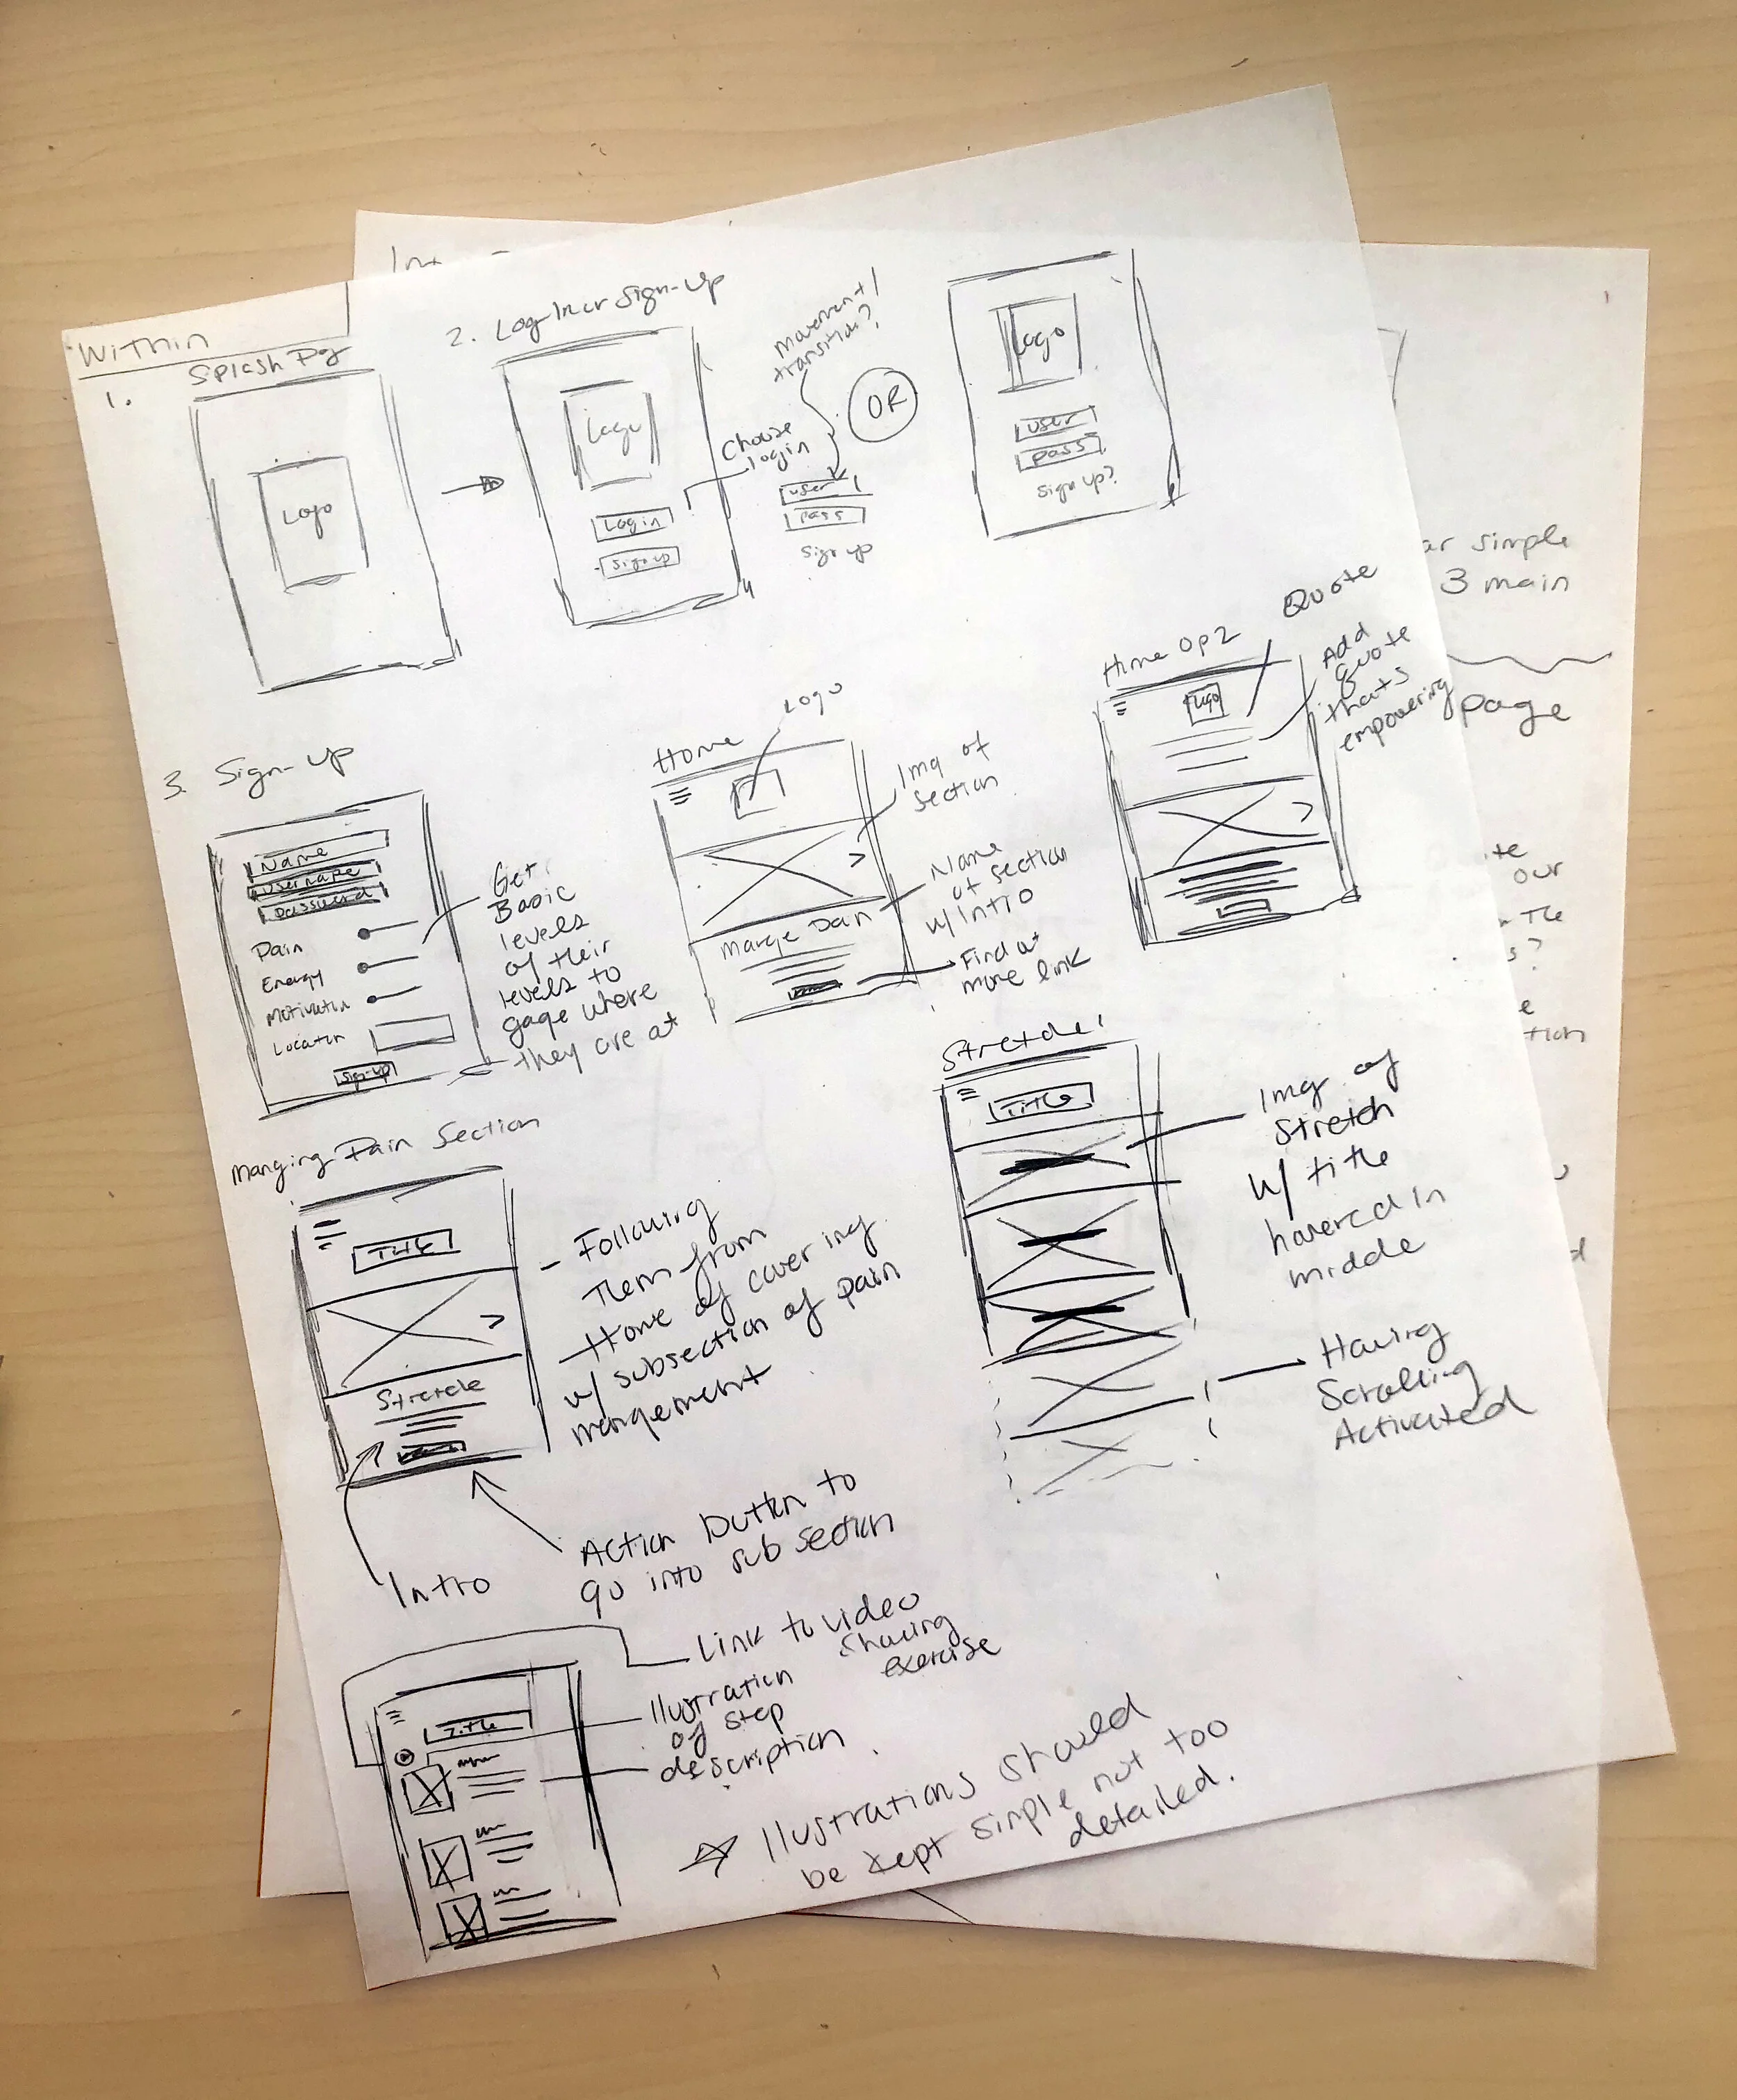 Within
1.
Splash Pg
Logo
2. Log In or Sign-Up
Logo
Login
Sign up
Choose
login
movement/
transition?
user
pass
Sign up
OR
Logo
user
pass
Sign up?
3. Sign-Up
Name
Username
Password
Pain
Energy
Motivation
Location
Sign-up
Get
Basic
levels
of their
levels to
gage where
they are at
Home
Logo
Img of
section
Name
of section
w/ Intro
Find out
more link
Home Op 2
Logo
Quote
Add
quote
thats
empowering
Section
Title
- Following
Them from
Home of covering
w/ subsection of pain
Intro
Action button to
go into sub section
Title
Img of
Stretch
w/ title
hovered in
middle
Having
Scrolling
Activated
Title
Link to video
exercise
of step
description
be kept simple not too
detailed.
simple
3 main
page
our